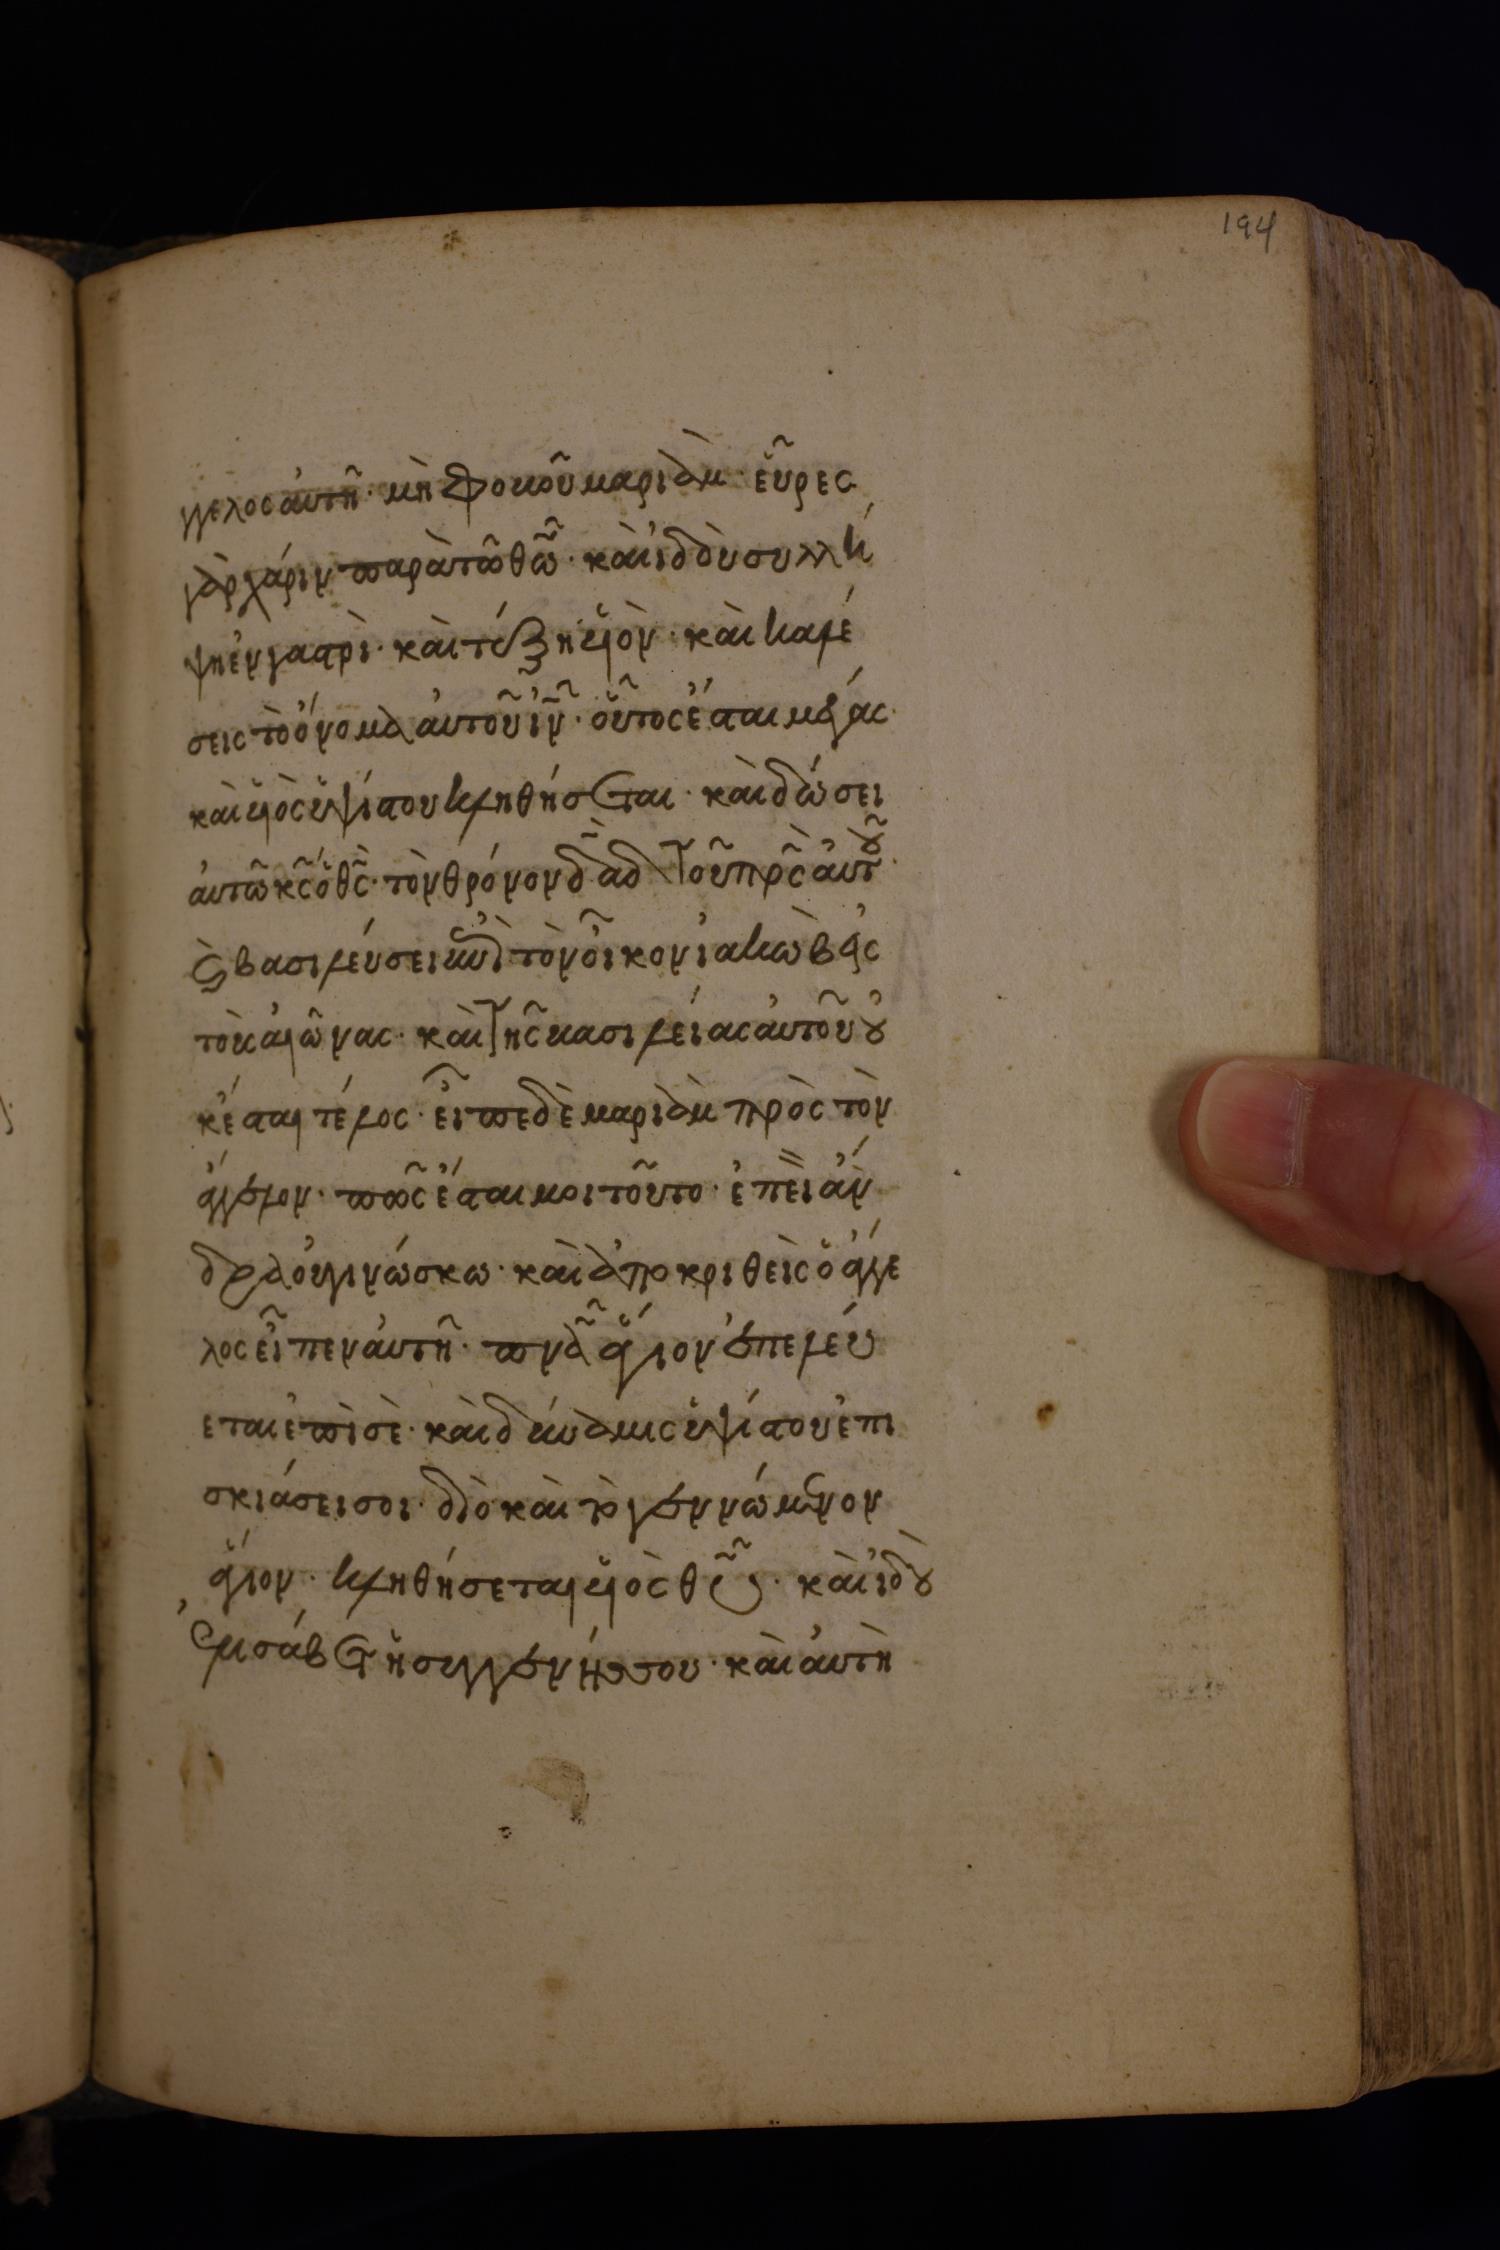 194
γγελος ἀυτῆ· μὴ φοβοῦ μαριὰμ· εὗρες
γὰρ χάριν παρὰ τῶ θῶ· καὶ ἰδοὺ συλλή
ψη ἐν γαστρὶ· καὶ τέξη ὑιὸν· καὶ καλέ
σεις τὸ ὄνομα ἀυτοῦ ιν· οὗτος ἔσται μέγας·
καὶ ὑιὸς ὑψίστου κληθήσεται· καὶ δώσει
ἀυτῶ κς ὁ θς· τὸν θρόνον δαδ τοῦ πρς ἀυτοῦ·
καὶ βασιλεύσει ἐπὶ τὸν οἶκον ἰακὼβ εἰς
τοὺς αἰῶνας· καὶ τῆς βασιλείας ἀυτοῦ οὐ
κ ἔσται τέλος· εἶπε δὲ μαριὰμ πρὸς τὸν
ἄγγελον· πῶς ἔσται μοι τοῦτο· ἐπεὶ ἄν
δρα οὐ γινώσκω· καὶ ἀποκριθεὶς ὁ ἄγγε
λος εἶπεν ἀυτῆ· πνα ἅγιον ἐπελεύ
εται ἐπὶ σὲ· καὶ δύναμις ὑψίστου ἐπι
σκιάσει σοι· διὸ καὶ τὸ γεννώμενον
ἅγιον· κληθήσεται ὑιὸς θυ· καὶ ἰδοὺ
ἐλισάβετ ἡ συγγενής σου· καὶ ἀυτὴ